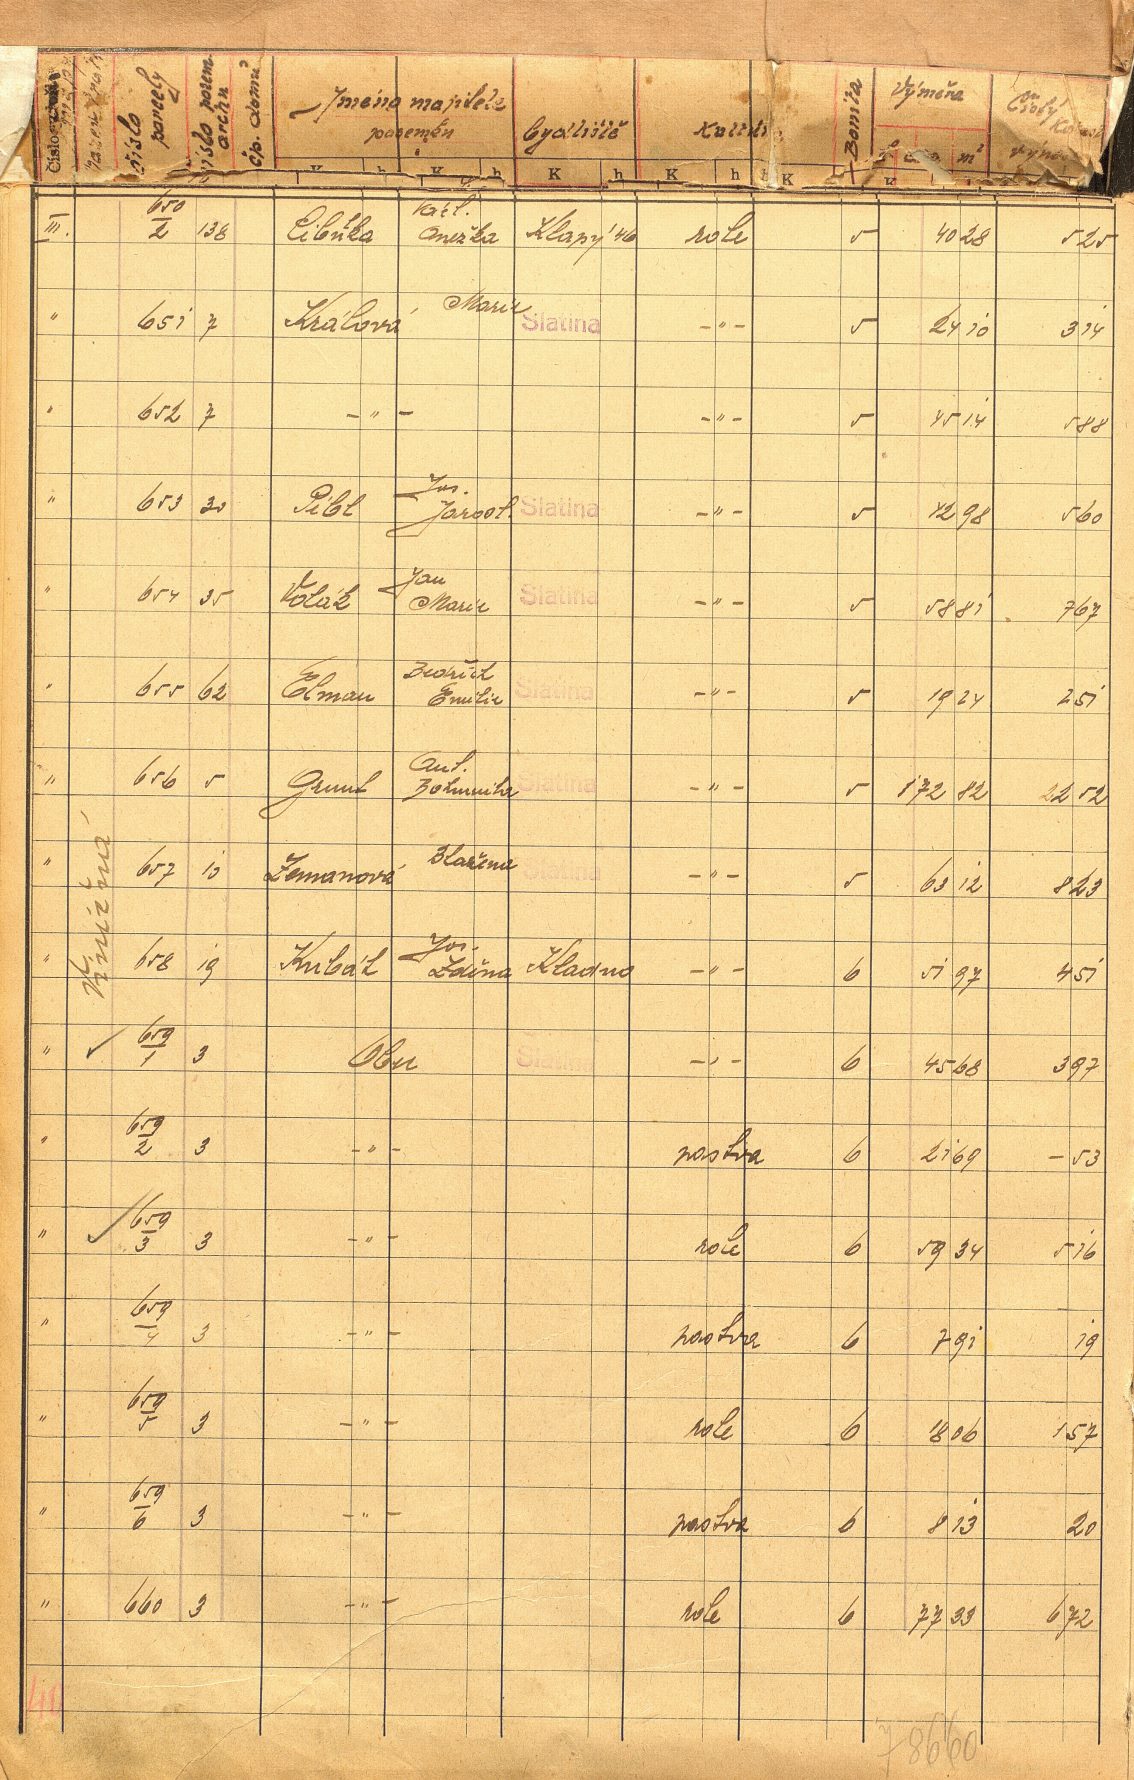 Číslo parcely
Číslo pozem. archu
čp. domu
Jména majitele pozemku
bydliště
Bonita
Výměra
m²
Čistý
K h K h K h K h K
III. 650/2 138 Cibulka Václ. Anežka Klapý 46 role 5 40 28 5 25
" 651 7 Králová Marie Slatina -"- 5 24 10 3 14
" 652 7 -"- -"- 5 45 14 5 88
" 653 30 Pibl Jos. Jarosl. Slatina -"- 5 42 98 5 60
" 654 35 Volák Jan Marie Slatina -"- 5 58 81 7 67
" 655 62 Elman Bedřich Emilie Slatina -"- 5 19 24 2 51
" 656 5 Grunt Ant. Bohumila Slatina -"- 5 1 72 82 22 52
" 657 10 Zemanová Blažena Slatina -"- 5 63 12 8 23
" 658 19 Kubát Jos. Zděna Kladno -"- 6 51 97 4 51
Viničná
" 659/1 3 Obec Slatina -"- 6 45 68 3 97
" 659/2 3 -"- pastva 6 21 69 - 53
" 659/3 3 -"- role 6 59 34 5 16
" 659/4 3 -"- pastva 6 7 91 19
" 659/5 3 -"- role 6 18 06 1 57
" 659/6 3 -"- pastva 6 8 13 20
" 660 3 -"- role 6 77 33 6 72
40
78660